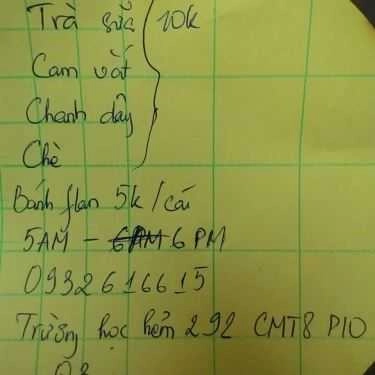 Trà sữa 10k
Cam vắt
Chanh dây
Chè
Bánh flan 5k/cái
5AM - 6AM 6 PM
0932616615
Trường học hẻm 292 CMT8 P10